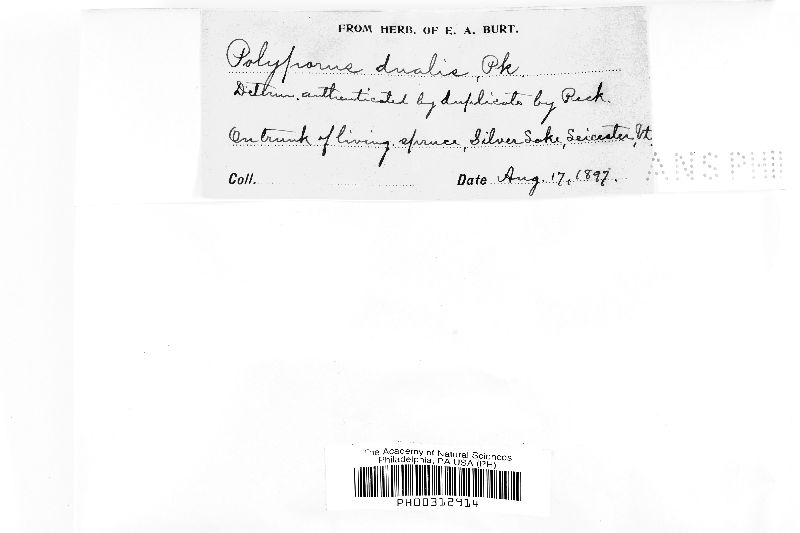 FROM HERB. OF E. A. BURT.
Polyporus dualis, Pk.
Determ. authenticated by duplicate by Peck.
On trunk of living spruce, Silver Lake, Leicester, Vt.
ANSPHI
Coll. Date Aug. 17, 1897.
The Academy of Natural Sciences
Philadelphia, PA USA (PH)
PH00312914